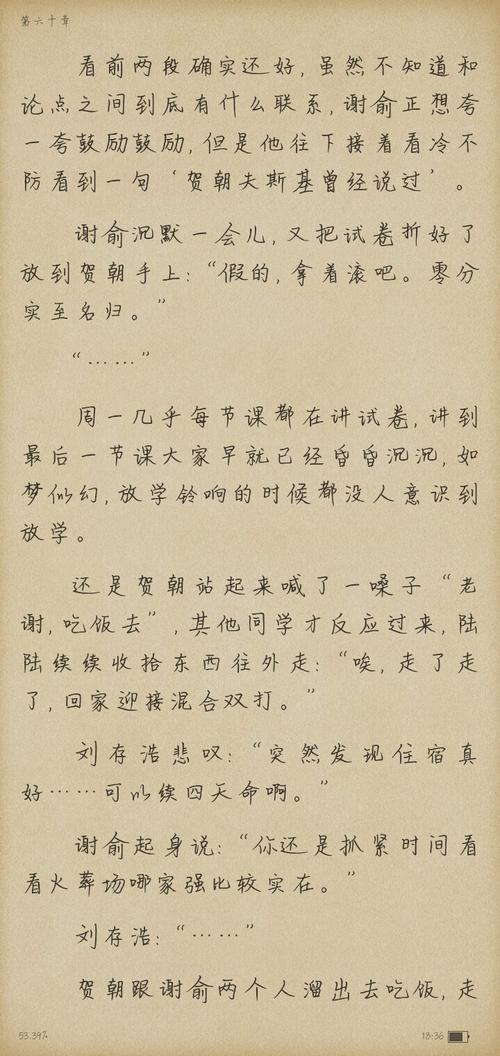 第六十章
看前两段确实还好，虽然不知道和
论点之间到底有什么联系，谢俞正想夸
一夸鼓励鼓励，但是他往下接着看冷不
防看到一句‘贺朝夫斯基曾经说过’。
谢俞沉默一会儿，又把试卷折好了
放到贺朝手上：“假的，拿着滚吧。零分
实至名归。”
“……”
周一几乎每节课都在讲试卷，讲到
最后一节课大家早就已经昏昏沉沉，如
梦似幻，放学铃响的时候都没人意识到
放学。
还是贺朝站起来喊了一嗓子“老
谢，吃饭去”，其他同学才反应过来，陆
陆续续收拾东西往外走：“唉，走了走
了，回家迎接混合双打。”
刘存浩悲叹：“突然发现住宿真
好……可以续四天命啊。”
谢俞起身说：“你还是抓紧时间看
看火葬场哪家强比较实在。”
刘存浩：“……”
贺朝跟谢俞两个人溜出去吃饭，走
53.39% 18:36